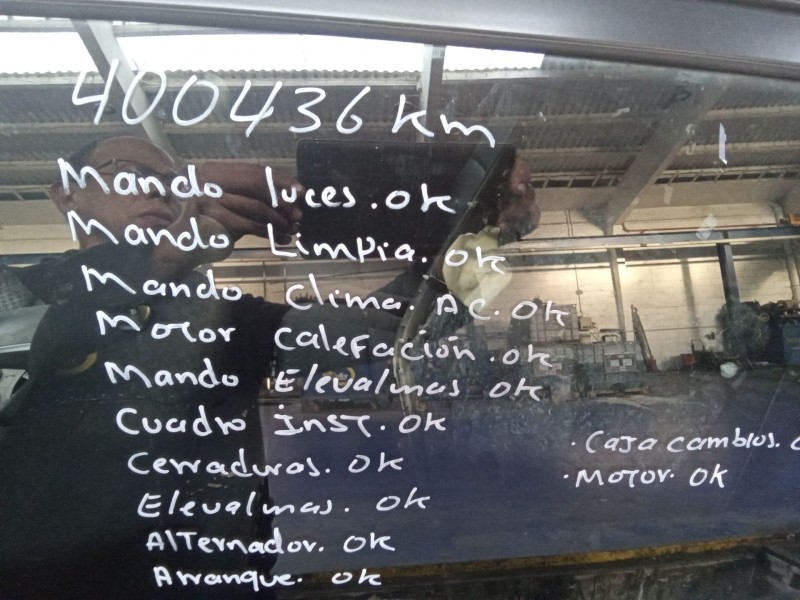 400436 km
Mando luces. ok
Mando Limpia. ok
Mando Clima. AC. OK
Motor calefación. ok
Mando Elevalunas ok
Cuadro inst. ok
Cerraduras. ok
Elevalunas. ok
Alternador. ok
Arranque. ok
· Caja cambios.
· Motor. ok